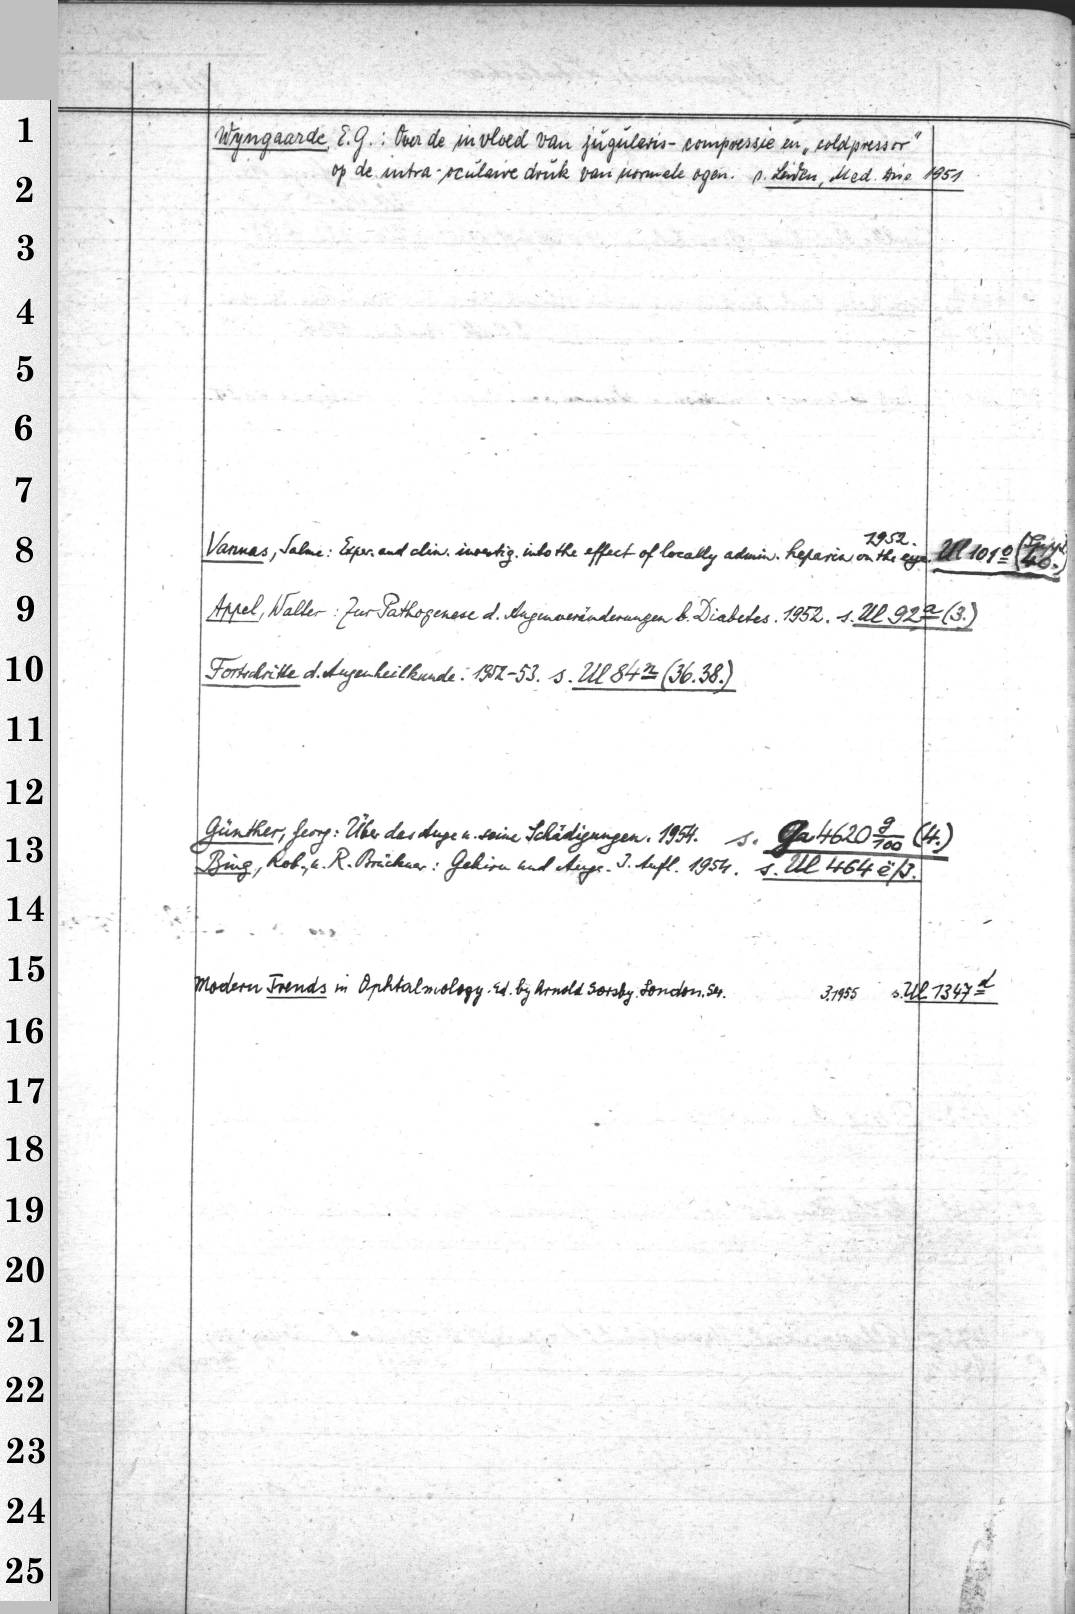 1 Wyngaarde, E.G.: Over de invloed van jugularis-compressie en „coldpressor"
2 op de intra-oculaire druk van normale ogen. s. Leiden, Med. Diss 1951
3
4
5
6
7
1952.
8 Vannas, Salme: Exper. and clin. investig. into the effect of locally admin. heparin on the eye. Ul 101 o (40.)
9 Appel, Walter: Zur Pathogenese d. Augenveränderungen b. Diabetes. 1952. s. Ul 92 a (3.)
10 Fortschritte d. Augenheilkunde. 1952-53. s. Ul 84 n (36.38.)
11
12
Günther, Georg: Über das Auge u. seine Schädigungen. 1954. s. Ga 4620 g/100 (4.)
13 Bing, Rob., u. R. Brückner: Gehirn und Auge. 3. Aufl. 1954. s. Ul 464 e/3.
14
15 Modern Trends in Ophtalmology. Ed. by Arnold Sorsby. London. Ser. 3.1955 s. Ul 1347 d
16
17
18
19
20
21
22
23
24
25